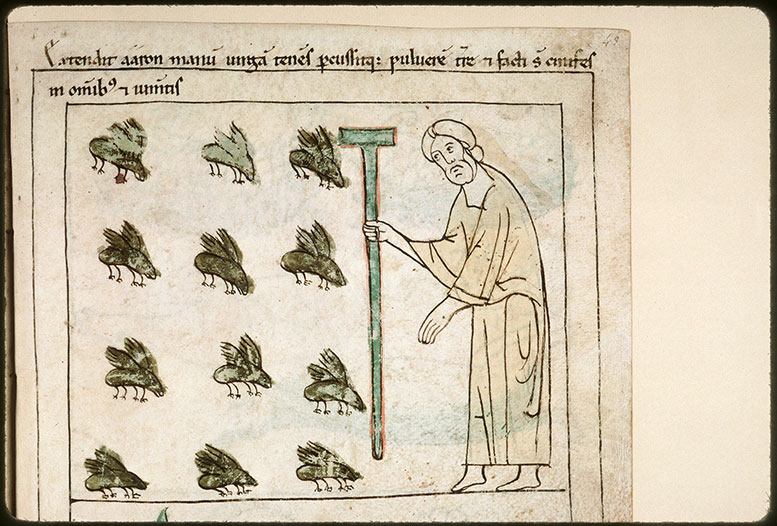 Extendit aaron manū uirgā tenēs ꝑcussitq; puluerē tr̄e ⁊ facti s̄ cinifes
in om̄ibꝰ ⁊ ium̄tis